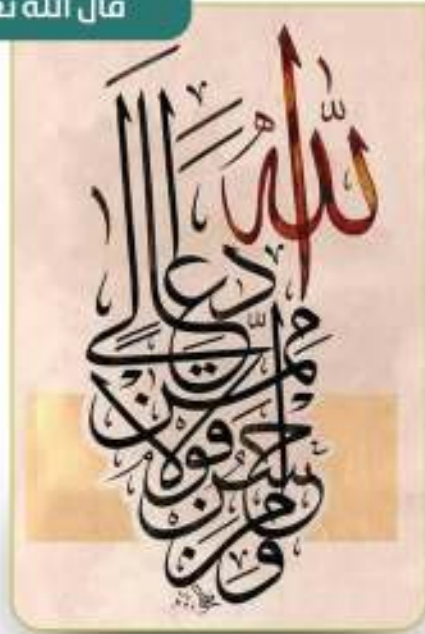 قال الله تع
ومن أحسن قولا ممن دعا إلى الله